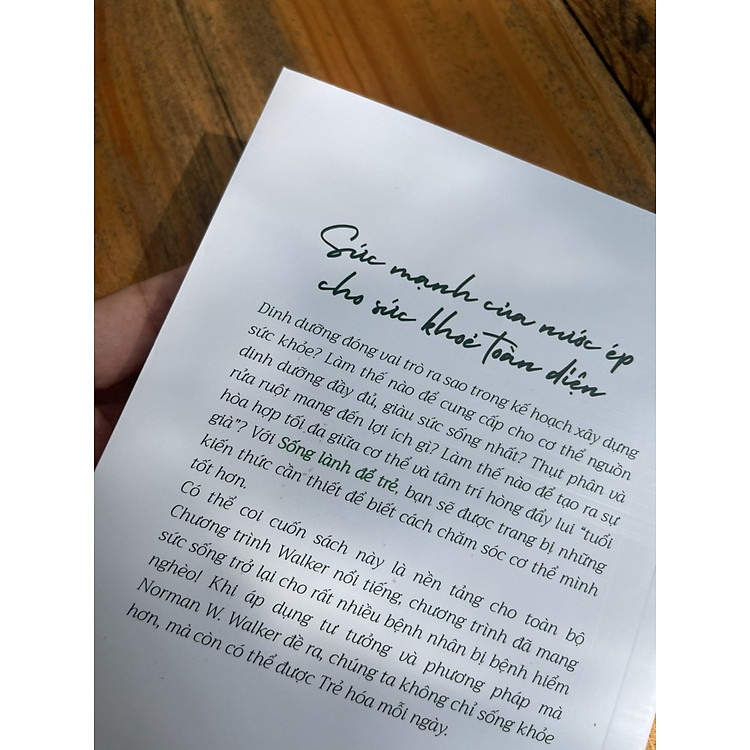 Sức mạnh của nước ép
cho sức khoẻ toàn diện
Dinh dưỡng đóng vai trò ra sao trong kế hoạch xây dựng
sức khỏe? Làm thế nào để cung cấp cho cơ thể nguồn
dinh dưỡng đầy đủ, giàu sức sống nhất? Thụt phân và
rửa ruột mang đến lợi ích gì? Làm thế nào để tạo ra sự
hòa hợp tối đa giữa cơ thể và tâm trí hòng đẩy lui “tuổi
già”? Với Sống lành để trẻ, bạn sẽ được trang bị những
kiến thức cần thiết để biết cách chăm sóc cơ thể mình
tốt hơn.
Có thể coi cuốn sách này là nền tảng cho toàn bộ
Chương trình Walker nổi tiếng, chương trình đã mang
sức sống trở lại cho rất nhiều bệnh nhân bị bệnh hiểm
nghèo! Khi áp dụng tư tưởng và phương pháp mà
Norman W. Walker đề ra, chúng ta không chỉ sống khỏe
hơn, mà còn có thể được Trẻ hóa mỗi ngày.